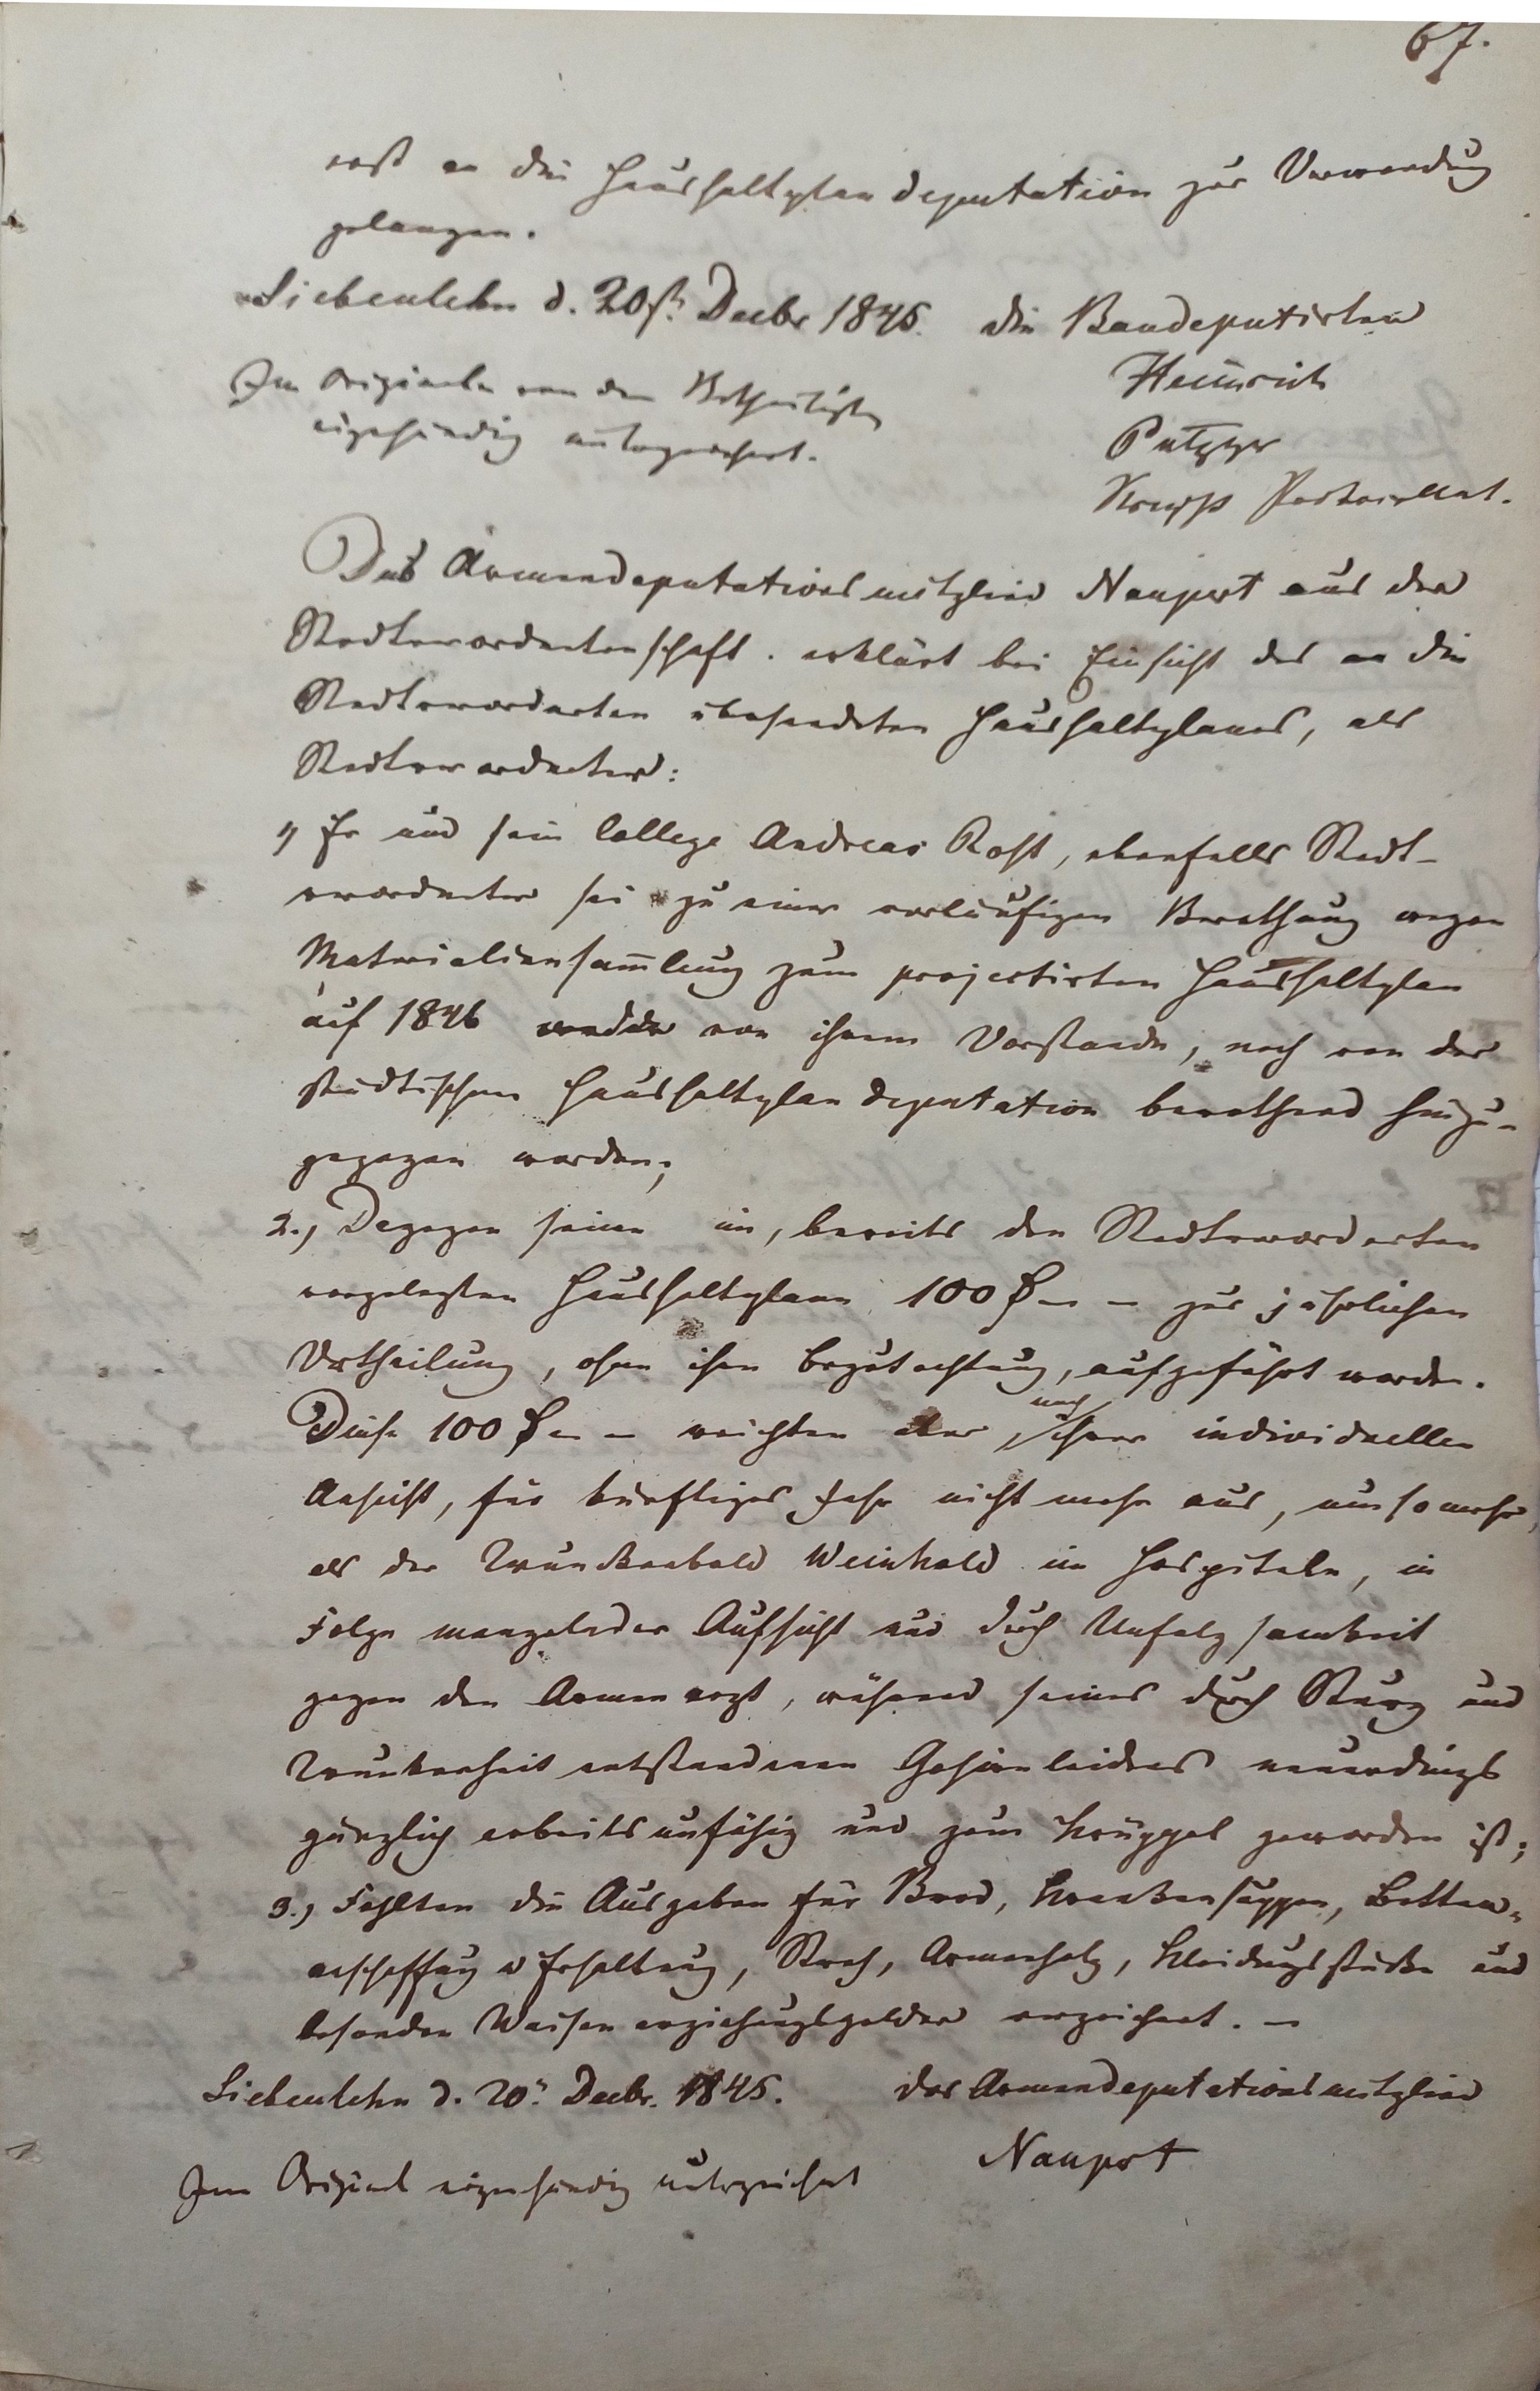 67.
erst an die Haushaltplandeputation zur Verwendung
gelangen.
Siebenlehn d. 20st. Decbr 1845. die Baudeputirten
Im Originale von den Betheiligten Heinrich
eigenhändig unterzeichnet. Putzger
Das Armendeputationsmitglied Naupert aus der
Stadtverordnetenschaft. erklärt bei Einsicht des an die
Stadtverordneten übersendeten Haushaltplanes, als
Stadtverordneter:
1, Er und sein College Andreas Rost, ebenfalls Stadt-
verordneter sei zu einer vorläufigen Berathung wegen
Materialiensam̅lung zum projectirten Haushaltplan
auf 1846 weder von ihrem Vorstande, noch von der
städtischen Haushaltplandeputation berathend hinzu-
gezogen worden;
2., Dagegen seien im, bereits den Stadtverordneten
vorgelegten Haushaltplane 100 ₰ – – zur jährlichen
Vertheilung, ohne ihre Begutachtung, aufgeführt worden.
Diese 100 ₰ – – reichten aber nach ihrer individuellen
Ansicht, für künftiges Jahr nicht mehr aus, um so mehr,
als der Trunkenbold Weinhold im Hospitale, in
Folge mangelnder Aufsicht und durch Unfolgsamkeit
gegen den Armenarzt, während seines durch Sturz und
Trunkenheit entstandenen Gehirnleidens neuerdings
gänzlich arbeitsunfähig und zum Krüppel geworden ist;
3., Fehlten die Ausgaben für Brod, Krankensuppen, Betten-
anschaffung u Erhaltung, Stroh, Armenholz, Kleidungsstücke und
besonder Waisenerziehungsgelder verzeichnet. –
Siebenlehn d. 20. Decbr. 1845. das Armendeputationsmitglied
Im Original eigenhändig unterzeichnet Naupert